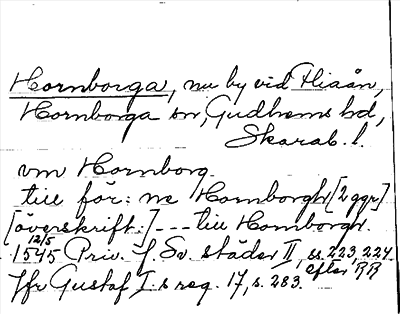 Hornborga, nu by vid Fliaån,
Hornborga sn, Gudhems hd,
Skarab. l.
vm Hornborg
till för: ne Hornborghr [2 ggr]
[överskrift:] --- till Hornborgr.
12/5
1545 Priv. f. Sv. städer II, ss. 223, 224.
efter RR
Jfr Gustaf I:s reg. 17, s. 283.